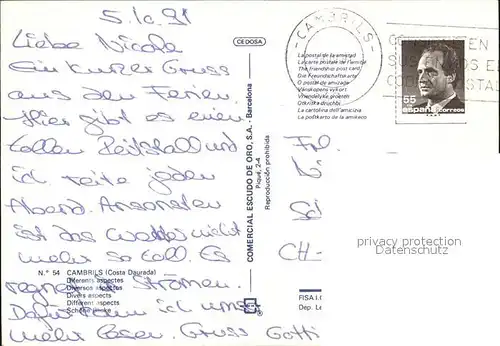 5.10.91
Liebe Nicole
Ein kurzer Gruss
aus den Ferien.
Hier gibt es einen
tollen Reitstall und
ich reite jeden
Abend. Ansonsten
ist das Wetter nicht
mehr so toll. Es
regnet in Strömen.
Dafür kann ich umso
mehr lesen. Gruss Gotti
N.º 54 CAMBRILS (Costa Daurada)
Diferents aspectes
Diversos aspectos
Divers aspects
Different aspects
Schöne
CEDOSA
COMERCIAL ESCUDO DE ORO, S.A. - Barcelona
Piqué, 2-4
Reproducción prohibida
CAMBRILS
La postal de la amistad
La carte postale de l'amitié
The friendship post card
Die Freundschaftskarte
O postal de amizade
Vänskapens vykort
Vriendelijke groeten
Otkritka druzhbi
La cartolina dell'amicizia
La postkarto de la amikeco
55
españa correos
Frl.
CH-
privacy protection
Datenschutz
FISA I.G.
Dep. Le